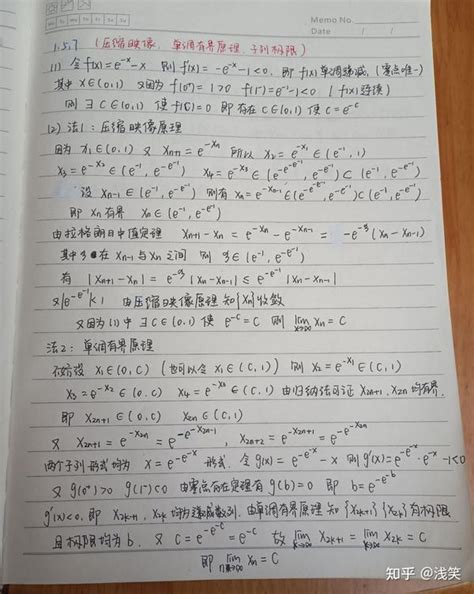 Memo No.
Date / /
Mo Tu We Th Fr Sa Su
1.5.7 (压缩映像, 单调有界原理, 子列极限)
(1) 令 f(x)=e^{-x}-x 则 f'(x)=-e^{-x}-1<0, 即 f(x) 单调递减, (零点唯一)
其中 x∈(0,1) 又因为 f(0⁺)=1>0 f(1⁻)=e^{-1}-1<0 (f(x)连续)
则 ∃ C∈(0,1) 使 f(C)=0 即存在 C∈(0,1) 使 C=e^{-C}
(2) 法1: 压缩映像原理
因为 x₁∈(0,1) 又 x_{n+1}=e^{-x_n} 所以 x₂=e^{-x₁}∈(e^{-1},1)
x₃=e^{-x₂}∈(e^{-1},e^{-e^{-1}}) x₄=e^{-x₃}∈(e^{-e^{-e^{-1}}},e^{-e^{-1}})⊂(e^{-1},e^{-e^{-1}})
设 x_{n-1}∈(e^{-1},e^{-e^{-1}}) 则有 x_n=e^{-x_{n-1}}∈(e^{-e^{-e^{-1}}},e^{-e^{-1}})⊂(e^{-1},e^{-e^{-1}})
即 x_n 有界 x_n∈(e^{-1},e^{-e^{-1}})
由拉格朗日中值定理 x_{n+1}-x_n=e^{-x_n}-e^{-x_{n-1}}=-e^{-ξ}(x_n-x_{n-1})
其中 ξ 在 x_{n-1} 与 x_n 之间 则 ξ∈(e^{-1},e^{-e^{-1}})
有 |x_{n+1}-x_n|=e^{-ξ}|x_n-x_{n-1}|≤e^{-e^{-1}}|x_n-x_{n-1}|
又|e^{-e^{-1}}|<1 由压缩映像原理知{x_n}收敛
又因为(1)中 ∃ C∈(0,1) 使 e^{-C}=C 则 lim x_n=C
法2: 单调有界原理
不妨设 x₁∈(0,C) (也可以令 x₁∈(C,1)) 则 x₂=e^{-x₁}∈(C,1)
x₃=e^{-x₂}∈(0,C) x₄=e^{-x₃}∈(C,1) 由归纳法可证 x_{2n+1},x_{2n}均有界.
即 x_{2n+1}∈(0,C) x_{2n}∈(C,1)
又 x_{2n+1}=e^{-x_{2n}}=e^{-e^{-x_{2n-1}}}, x_{2n+2}=e^{-x_{2n+1}}=e^{-e^{-x_{2n}}}
两个子列形式均为 x=e^{-e^{-x}} 形式. 令 g(x)=e^{-e^{-x}}-x 则 g'(x)=e^{-e^{-x}}·e^{-x}-1<0
又 g(0⁺)>0 g(1⁻)<0 由零点存在定理有 g(b)=0 即 b=e^{-e^{-b}}
g'(x)<0, 即 x_{2k+1}, x_{2k} 均为递减数列. 由单调有界原理知 {x_{2k+1}} {x_{2k}}有极限
且极限均为 b. 又 C=e^{-e^{-C}}=e^{-C} 故 lim x_{2k+1}=lim x_{2k}=C
即 lim x_n=C
知乎 @浅笑